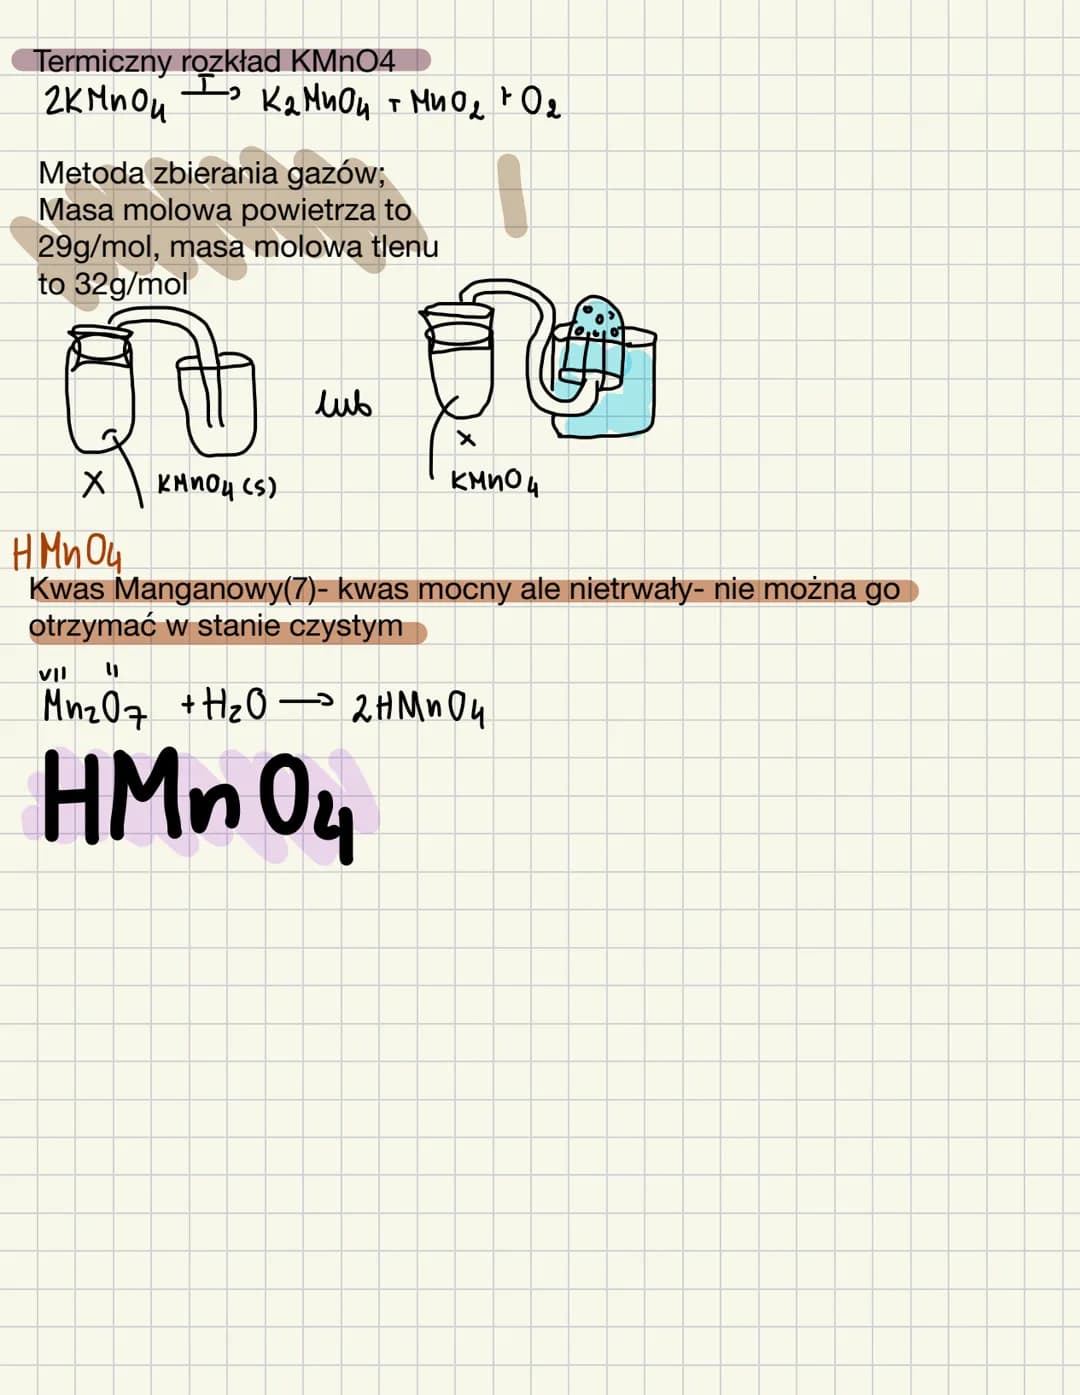 Termiczny rozkład KMnO4
2KMnO4 T→ K2MnO4 + MnO2 + O2
Metoda zbierania gazów;
Masa molowa powietrza to
29g/mol, masa molowa tlenu
to 32g/mol
lub
X KMnO4 (s)
x
KMnO4
HMnO4
Kwas Manganowy(7)- kwas mocny ale nietrwały- nie można go
otrzymać w stanie czystym
VII II
Mn2O7 + H2O → 2HMnO4
HMnO4